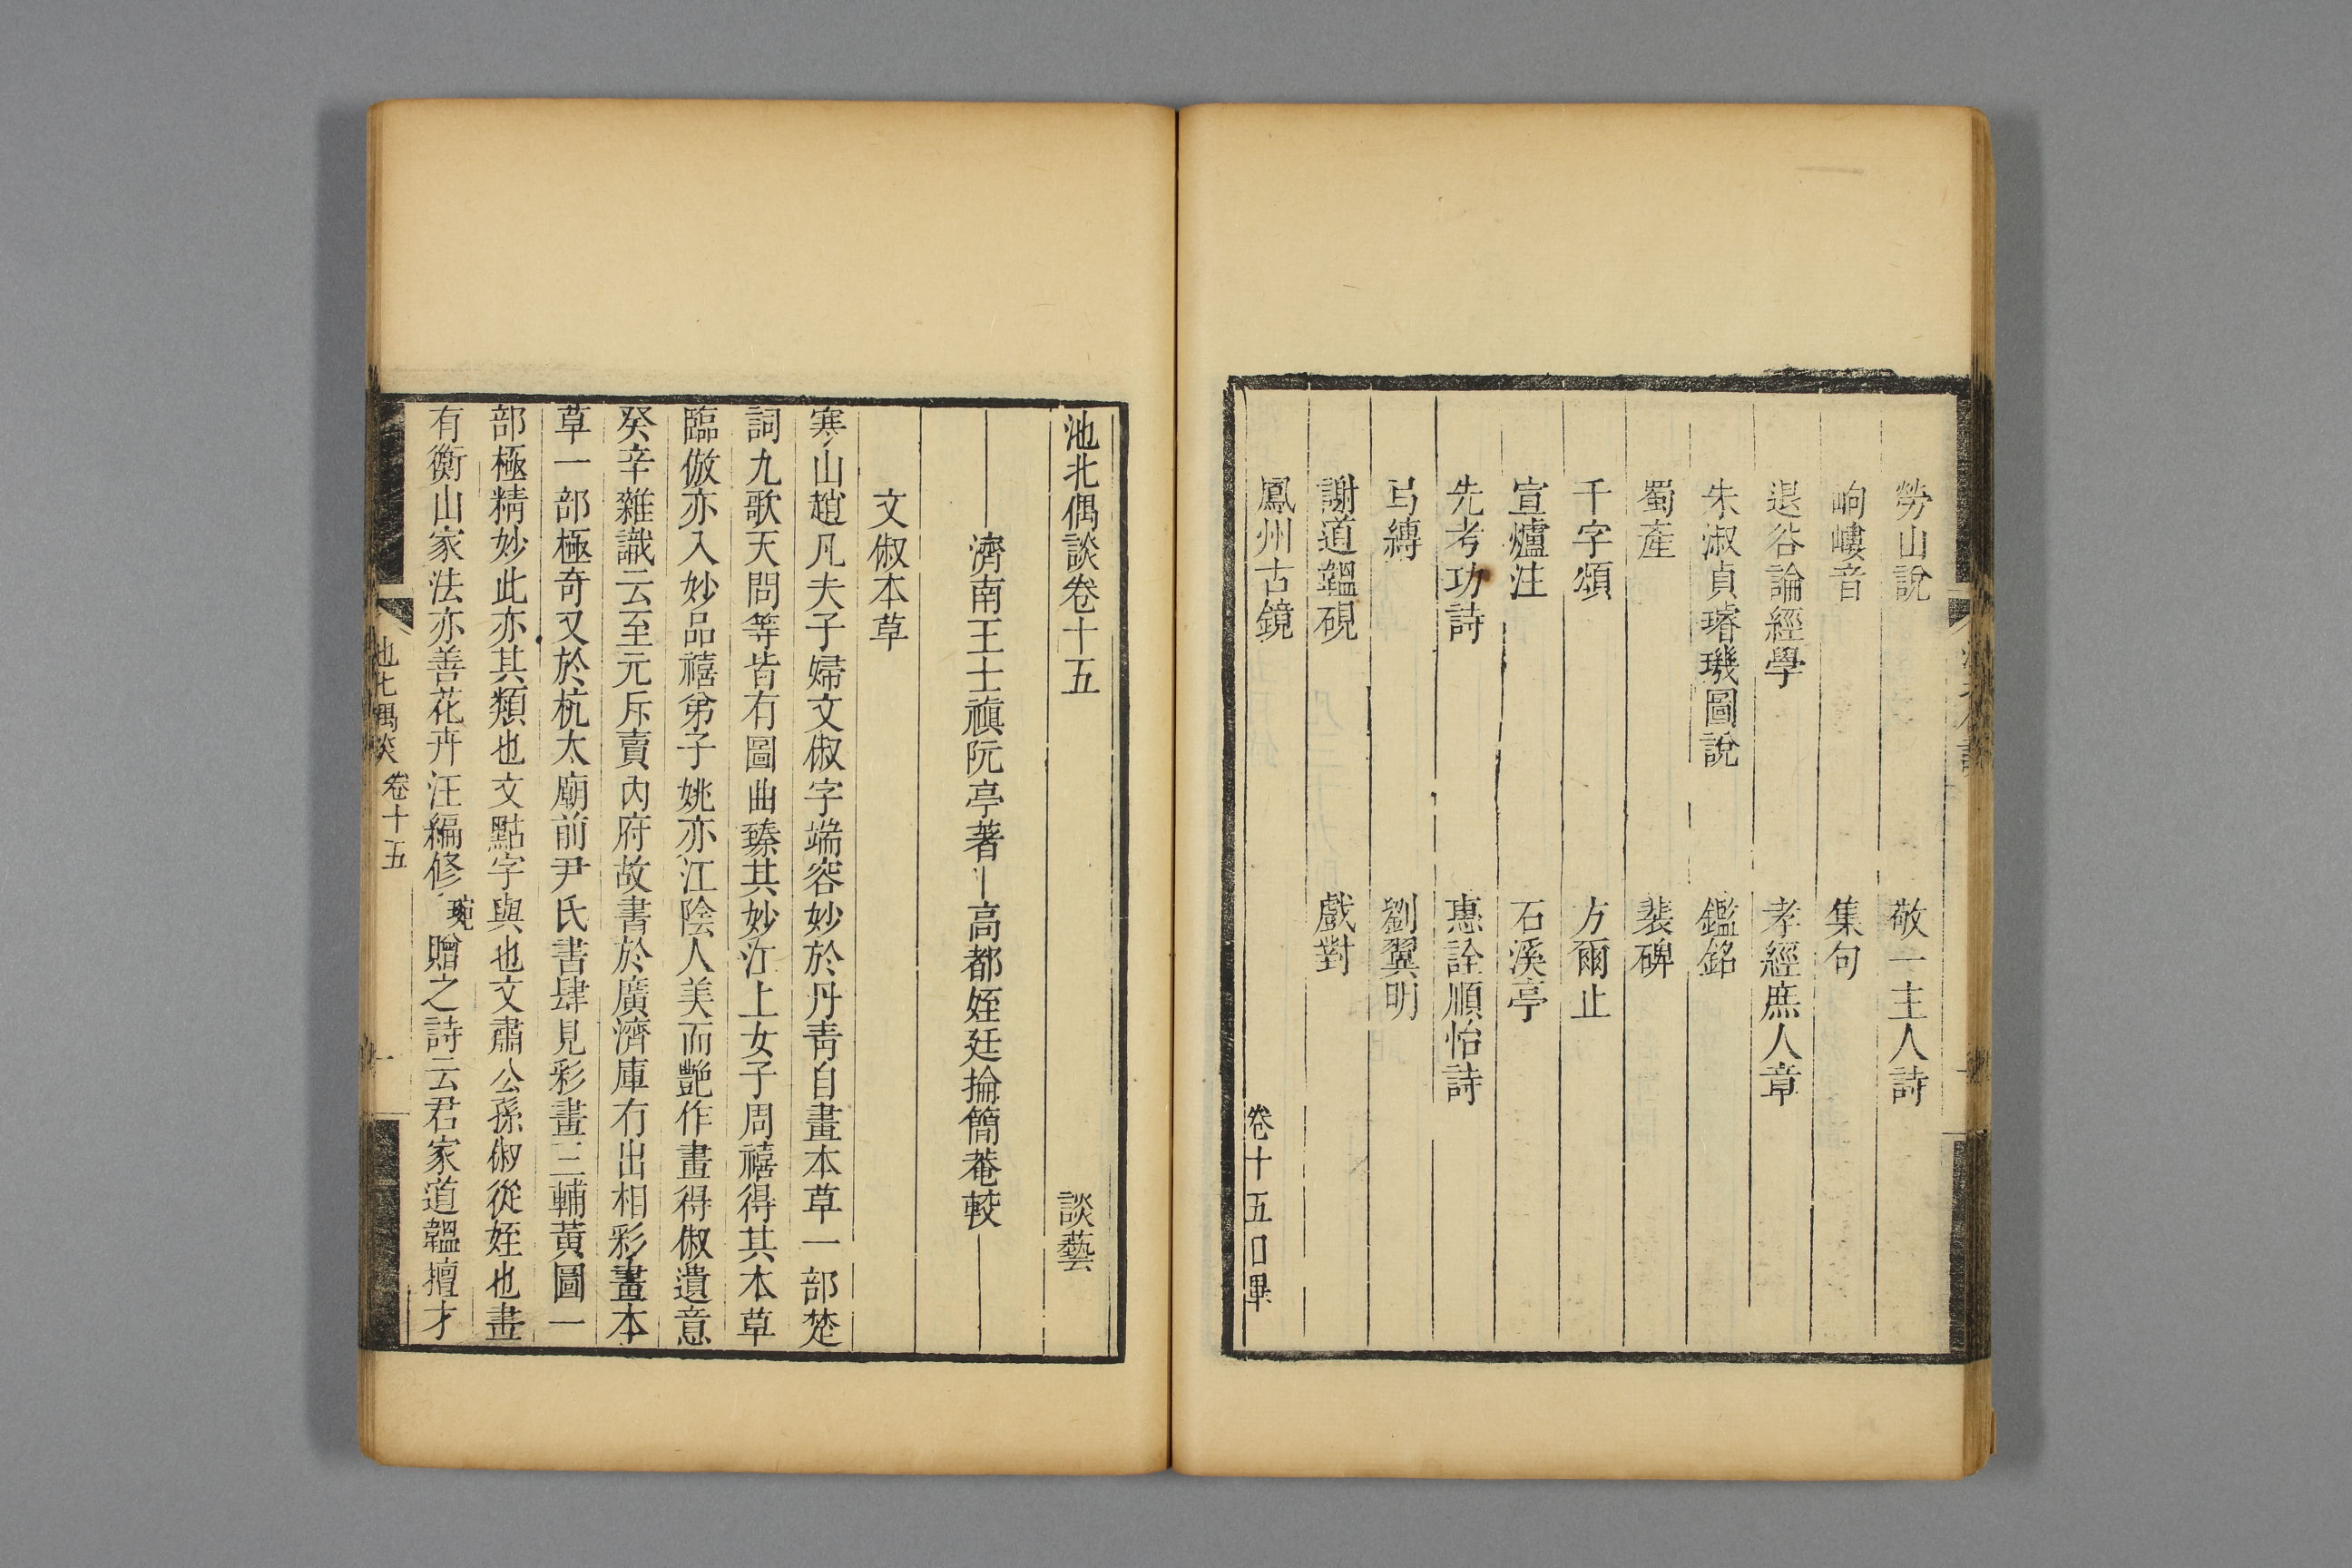 勞山說　敬一主人詩
岣嶁音　集句
退谷論經學　孝經庶人章
朱淑貞璿璣圖說　鑑銘
蜀產　裴碑
千字頌　方爾止
宣爐注　石溪亭
先考功詩　惠詮順怡詩
馬縛　劉翼明
謝道韞硯　戲對
鳳州古鏡　卷十五目畢
池北偶談卷十五　談藝
濟南王士禛阮亭著　高都姪廷掄簡菴較
文俶本草
寒山趙凡夫子婦文俶字端容妙於丹靑自畫本草一部楚
詞九歌天問等皆有圖曲臻其妙江上女子周禧得其本草
臨倣亦入妙品禧弟子姚亦江陰人美而艷作畫得俶遺意
癸辛雜識云至元斥賣內府故書於廣濟庫有出相彩畫本
草一部極奇又於杭太廟前尹氏書肆見彩畫三輔黃圖一
部極精妙此亦其類也文點字與也文肅公孫俶從姪也畫
有衡山家法亦善花卉汪編修琬贈之詩云君家道韞擅才
池北偶談　卷十五　一